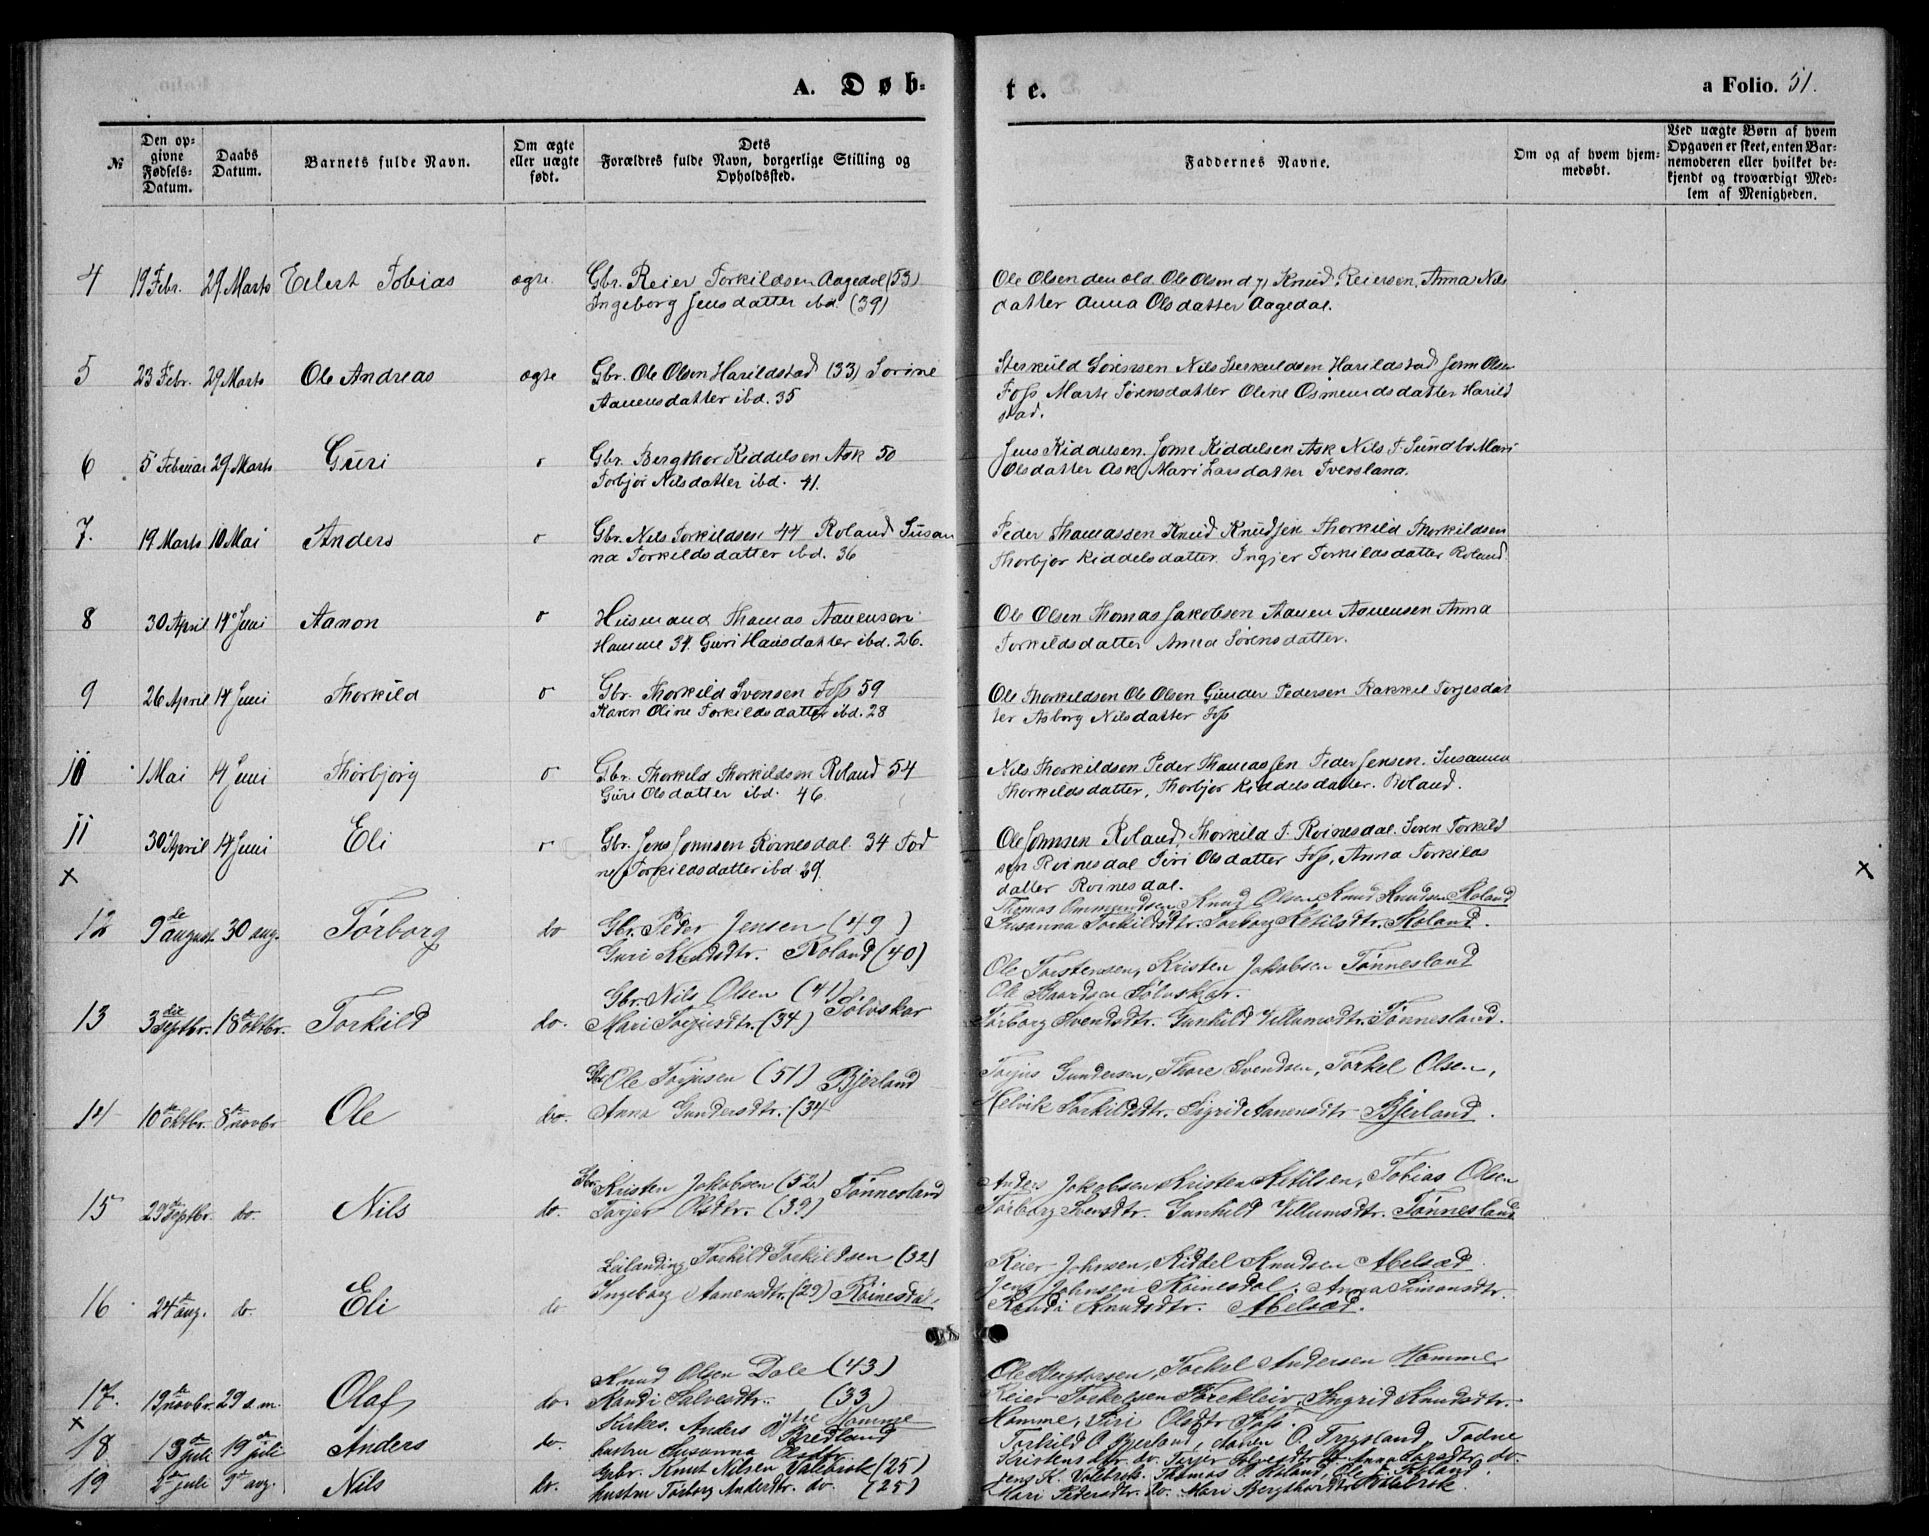 A. Døb-
te.
a Folio. 51.
№
Den op-
givne
Fødsels-
Datum.
Daabs
Datum.
Barnets fulde Navn.
Om ægte
eller uægte
født.
Dets
Forældres fulde Navn, borgerlige Stilling og
Opholdssted.
Faddernes Navne.
Om og af hvem hjem-
medøbt.
Ved uægte Børn af hvem
Opgaven er skeet, enten Bar-
nemoderen eller hvilket be-
kjendt og troværdigt Med-
lem af Menigheden.
4 19 Febr. 29 Marts Eilert Tobias ægte Gbr. Reier Torkildsen Aagedal (53)
Ingeborg Jensdatter ibd. (39)
Ole Olsen den old. Ole Olsen d y) Knud Reiersen, Anna Nils
datter Anna Olsdatter Aagedal.
5 23 Febr. 29 Marts Ole Andreas ægte Gbr. Ole Olsen Harildstad (33) Sorine
Aanensdatter ibd. 35
Sterkuld Sørensen Nils Sterkuldsen Harildstad Jorn Olsen
Foss Marte Sørensdatter Oline Osmundsdatter Harild
stad.
6 5 Februar 29 Marts Guri o Gbr. Bergthor Kiddelsen Ask 50
Torbjør Nilsdatter ibd. 41.
Jens Kiddelsen. Jorn Kiddelsen Ask Nils T. Sundbø Mari
Olsdatter Ask Mari Larsdatter Iversland.
7. 19 Marts 10 Mai Anders o Gbr. Nils Torkildsen 44 Roland Susan
na Torkildsdatter ibd. 36
Peder Thomassen Knud Knudsen Thorkild Thorkildsen
Thorbjør Kiddelsdatter. Ingjer Torkildsdatter Roland.
8 30 April 14 Juni Aanon o Husmand Thomas Aanensen
Homme 34. Guri Hansdatter ibd. 26.
Ole Olsen Thomas Jakobsen Aanen Aanensen Anna
Torkildsdatter Anna Sørensdatter.
9 26 April 14 Juni Thorkild o Gbr. Thorkild Svensen Foss 59
Karen Oline Torkildsdatter ibd. 28
Ole Thorkildsen Ole Olsen Gunder Pedersen Rakkel Torjesdat
ter Asborg Nilsdatter Foss
10 1 Mai 14 Juni Thorbjørg o Gbr. Thorkild Thorkildsen Roland 54
Guri Olsdatter ibd. 46.
Nils Thorkildsen Peder Thomassen Peder Jensen. Susanna
Thorkildsdatter, Thorbjør Kiddelsdatter. Roland.
11 30 April 14 Juni Eli o Gbr. Jens Jonnsen Roinesdal 34 Tod
ne Torkildsdatter ibd. 29.
Ole Jonnsen Roland, Thorkild T. Roinesdal. Søren Torkild
sen Roinesdal Siri Olsdatter Foss, Anna Torkilds
datter Roinesdal.
x x
12 9de august 30 aug. Tørborg do Gbr. Peder Jensen (49)
Guri Knudsdtr. Roland (40)
Thomas Ommundsen Knud Olsen Knud Knudsen Roland
Susanna Torkildsdtr. Torborg Ketilsdtr. Roland.
13 3die Septbr. 18de oktbr. Torkild do. Gbr. Nils Olsen (41) Sølvskar
Mari Torjusdtr. (34)
Ole Torstensen, Kristen Jakobsen Tønnesland
Ole Baardsen Sølvskar.
Tørborg Svendsdtr. Gunhild Villumsdtr. Tønnesland.
14 10de oktbr. 8de novbr Ole do. Gbr Ole Torjusen (51) Bjerland
Anna Gundersdtr. (34
Torjus Gundersen, Thore Svendsen, Torkel Olsen,
Helvik Torkildsdtr. Sigrid Aanensdtr Bjerland.
15 29de Septbr. do. Nils do. Gbr. Kristen Jakobsen (52) Tønnesland
Torjer Olsdtr. (39)
Anders Jakobsen Kristen Ketilsen, Tobias Olsen
Tørborg Svensdtr. Gunhild Villumsdtr. Tønnesland
16 24de aug. do. Eli do Leilænding Torkild Torkildsen (32)
Ingeborg Aanensdtr. (29) Røinesdal,
Reier Johnsen, Kiddel Knudsen Abelsæd.
Jens Johnsen Røinesdal. Anna Simonsdtr.
Randi Knudsdtr. Abelsæd.
17. 19de novbr. 29 s.m. Olaf do. Knud Olsen Dale (43)
Randi Salvesdtr. (33)
ytre Homme
Ole Bergtorsen, Torkel Andersen Homme
Reier Torkelsen Torekleiv, Ingrid Knudsdtr.
Homme, Siri Olsdtr Foss.
x
18 13de juli 19de juli Anders do. Anders O Bredland
hustru Susanna Olsdtr
Torkild O Bjerland, Aanen O. Trygsland, Todne
Kristensdtr. do. Torjer Salvesdtr Anna Larsdtr do.
19 2de juli 9de aug. Nils do. Gbr. Knut Nilsen Valebrok (25)
hustru Torborg Andersdtr. do. (25)
Jens K. Valebrok. Thomas O. Roland, Ole Roland.
Mari Pedersdtr. do. Mari Bergthorsdtr Valebrok.